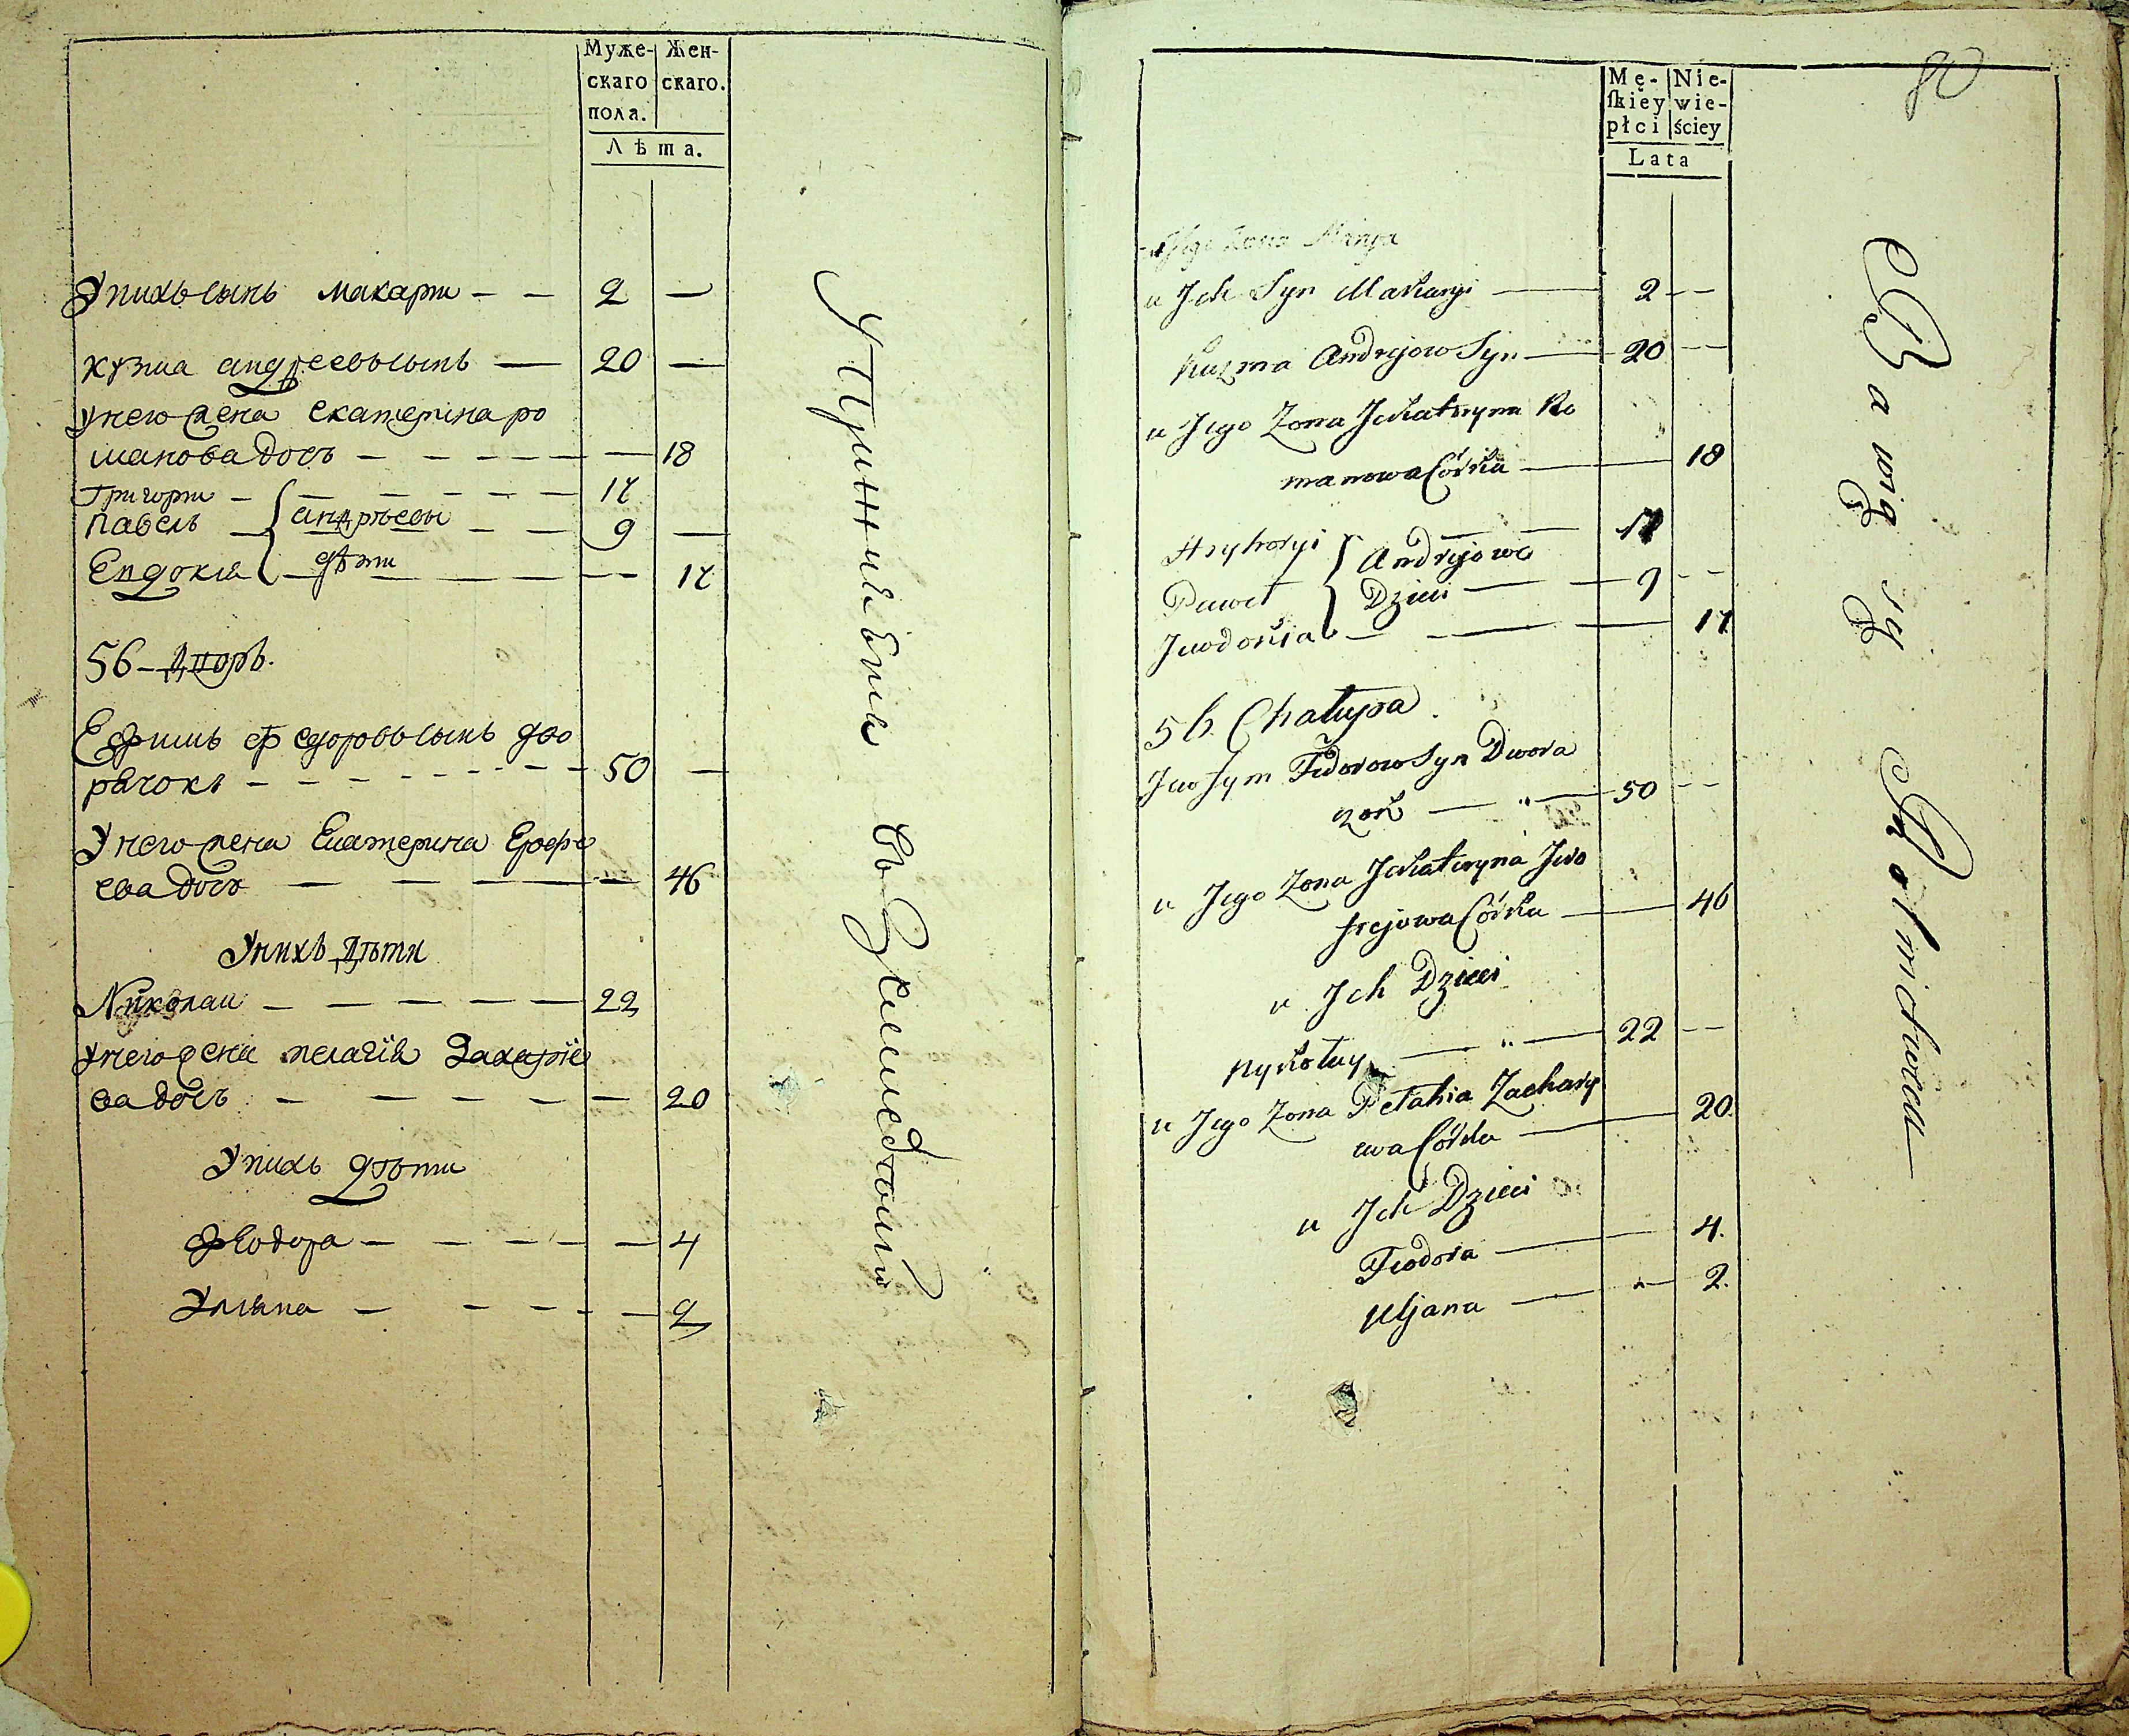 Муже- Жен-
скаго скаго.
пола.
Лѣта.
Унихъ сынъ макари — — 2 —
кузма андреевъ сынъ — 20 —
унего жена екатерина ро
манова дочь — — — — — 18
Григори — — — — — 17
павелъ — андрѣевы — — 9 —
Евдокия — дѣти — — — — 17
56 — Дворъ.
Ефимъ федоровъ сынъ дво
рачокъ — — — — — — 50 —
Унего жена Екатерина Ерофе
ева дочь — — — — — 46
Унихъ Дѣти
Николаи — — — — — 22
унего жена пелагія Захаріе
ва дочь — — — — — — 20
Унихъ дѣти
Феодора — — — — — 4
Улияна — — — — — 2
Упражняется въ Земледелии
80
Mę- Nie-
ſkiey wie-
płci ściey
Lata
Jego Zona
u Jch Syn Makaryi — 2 — —
Kuzma Andrejow Syn — 20 — —
u Jego Zona Jekatryna Ro
manowa Córka — 18
Hryhoryi — — 17
Andrejowe
Paweł Dzieci — — 9 — —
Jewdokia — — — — 17
56. Chałupa
Jewfym Fedorow Syn Dwora
czok — " — 50 — —
u Jego Zona Jekateryna Jero
frejowa Córka — 46
u Jch Dzieci
Nykołay — " — 22 — —
u Jego Zona Pełahia Zachary
ewa Córka — 20
u Jch Dzieci
Feodora — 4.
Uljana — " — 2.
Bawią się Rolnictwem